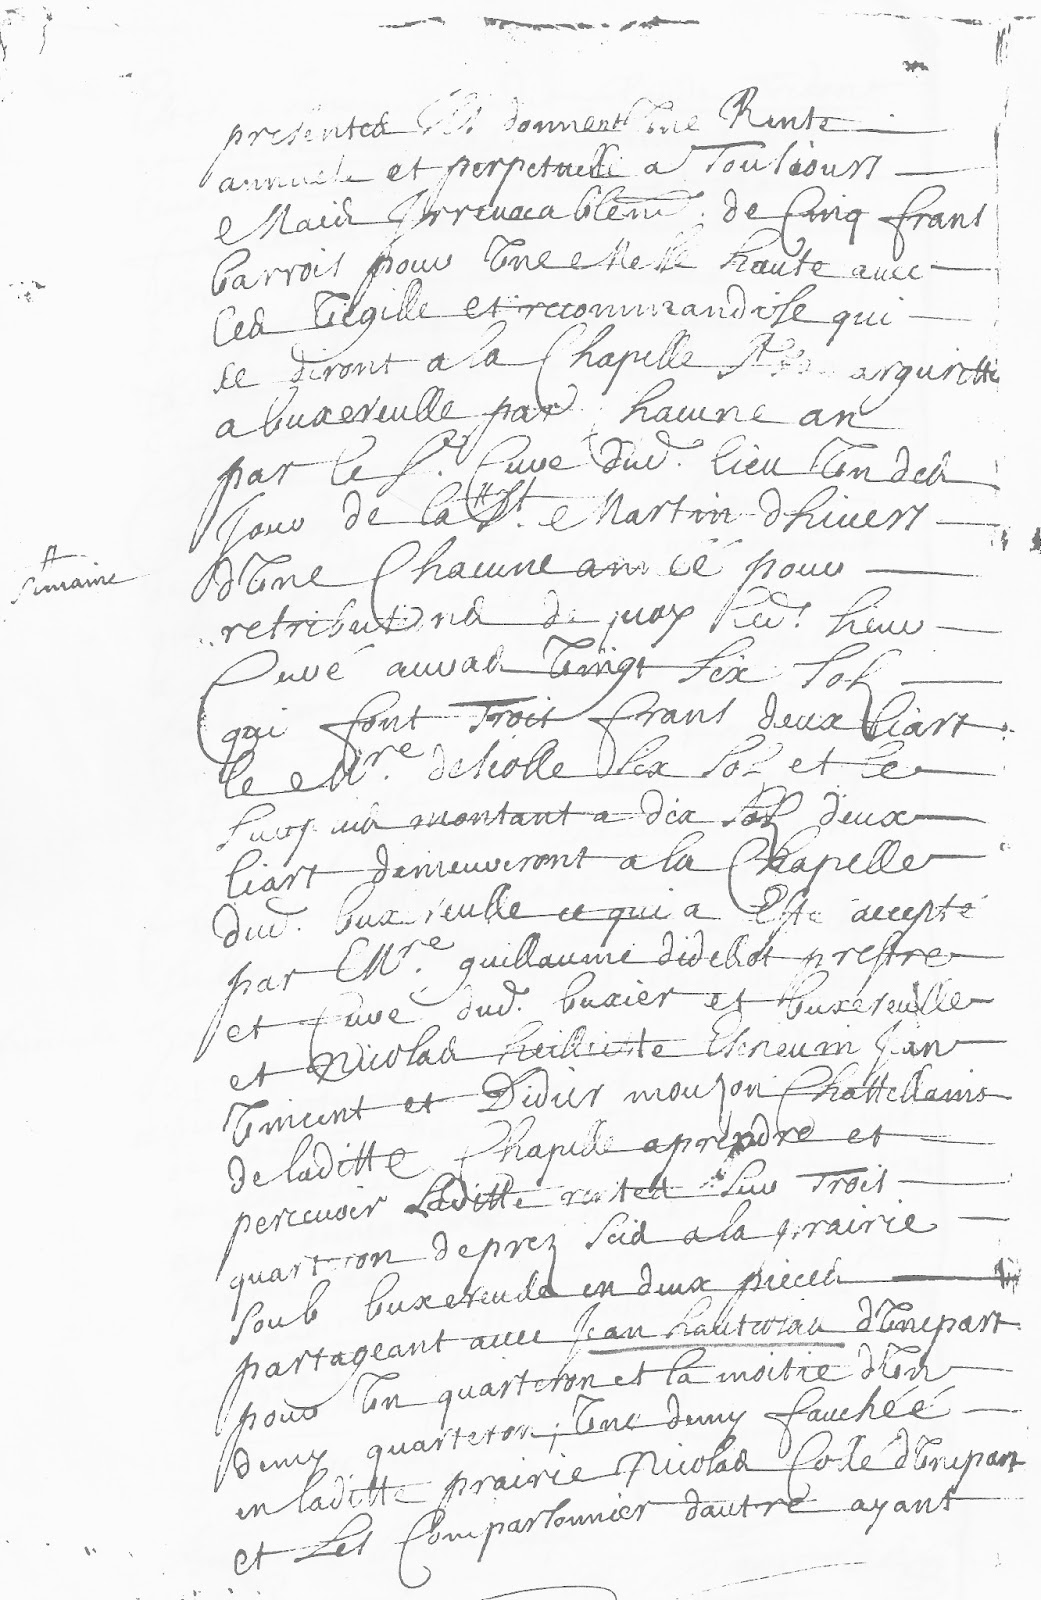 presentes Ils donnent Une Rente
annuele et perpetuelle a Toujours
Mais Jrrevocablemt. de Cinq frans
barrois pour Une Messe haute avec
Ces Vigille et recommandise qui
se diront a la Chapelle Ste marguritte
a buxereulle par chacune an
par le Sr. Curé dud. lieu Un des
Jour de la St. Martin dhivers
semaine
dUne Chacune année pour
retributions de quoy led. sieur
Curé auras Vingt Six Sols
qui font Trois frans deux liart
le Mre. descolle Six Sols et le
surplus montant a dix Sols deux
liart demeureront a la Chapelle
dud. buxereulle ce qui a Esté accepté
par Mre. guillaume didelot prestre
et Curé dud. buxier et buxereulle
et Nicolas Eschevin Jan
Vincent et Didier mouzon Chattellains
de laditte Chapelle aprendre et
percevoir laditte rentes sur Trois
quarteron de prez Scis a la prairie
soub buxereulle en deux pieces
partageant avec Jean hautcolas dUnepart
pour Un quarteron et la moitie dUn
demy quarteron, Une demy fauchéé
en laditte prairie Nicolas Collé dUnepart
et Les Comparsonnier dautre ayant